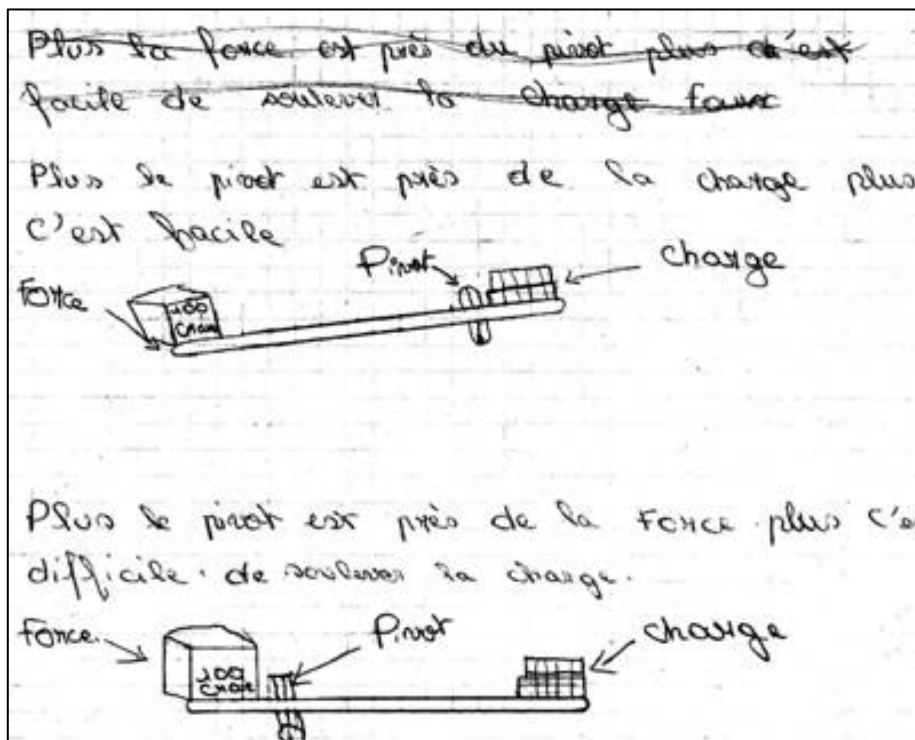 Plus la force est près du pivot plus c'est
facile de soulever la charge faux
Plus le pivot est près de la charge plus
c'est facile
Pivot charge
Force
100
Plus le pivot est près de la Force plus c'e
difficile. de soulever la charge.
Force Pivot charge
100